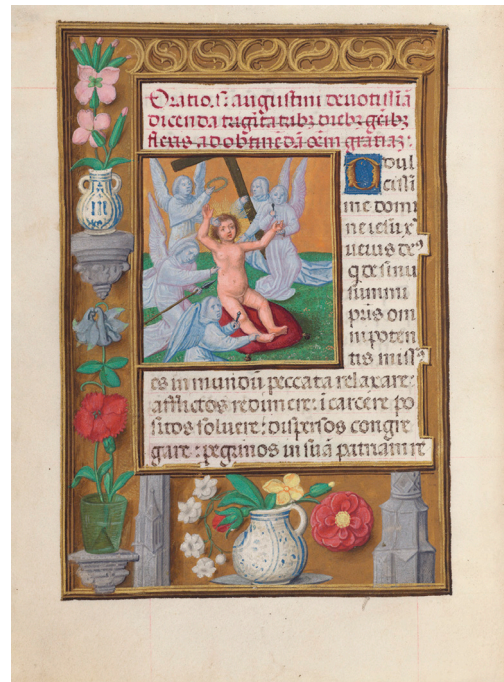 Oratio. s. augustini deuotissīa
dicenda trigīta tribꝫ diebꝫ gēibꝫ
flexis ad obtinēdā oēm gratiaꝫ:
O dul
cissi
me domi
ne iesu x̄
uerus deꝰ
q de sinu
summi
pris om
nipoten
tis missꝰ
es in mundū peccata relaxare:
afflictos redimere: ī carcere po
sitos soluere: dispersos congre
gare: pegrinos in suā patriam re